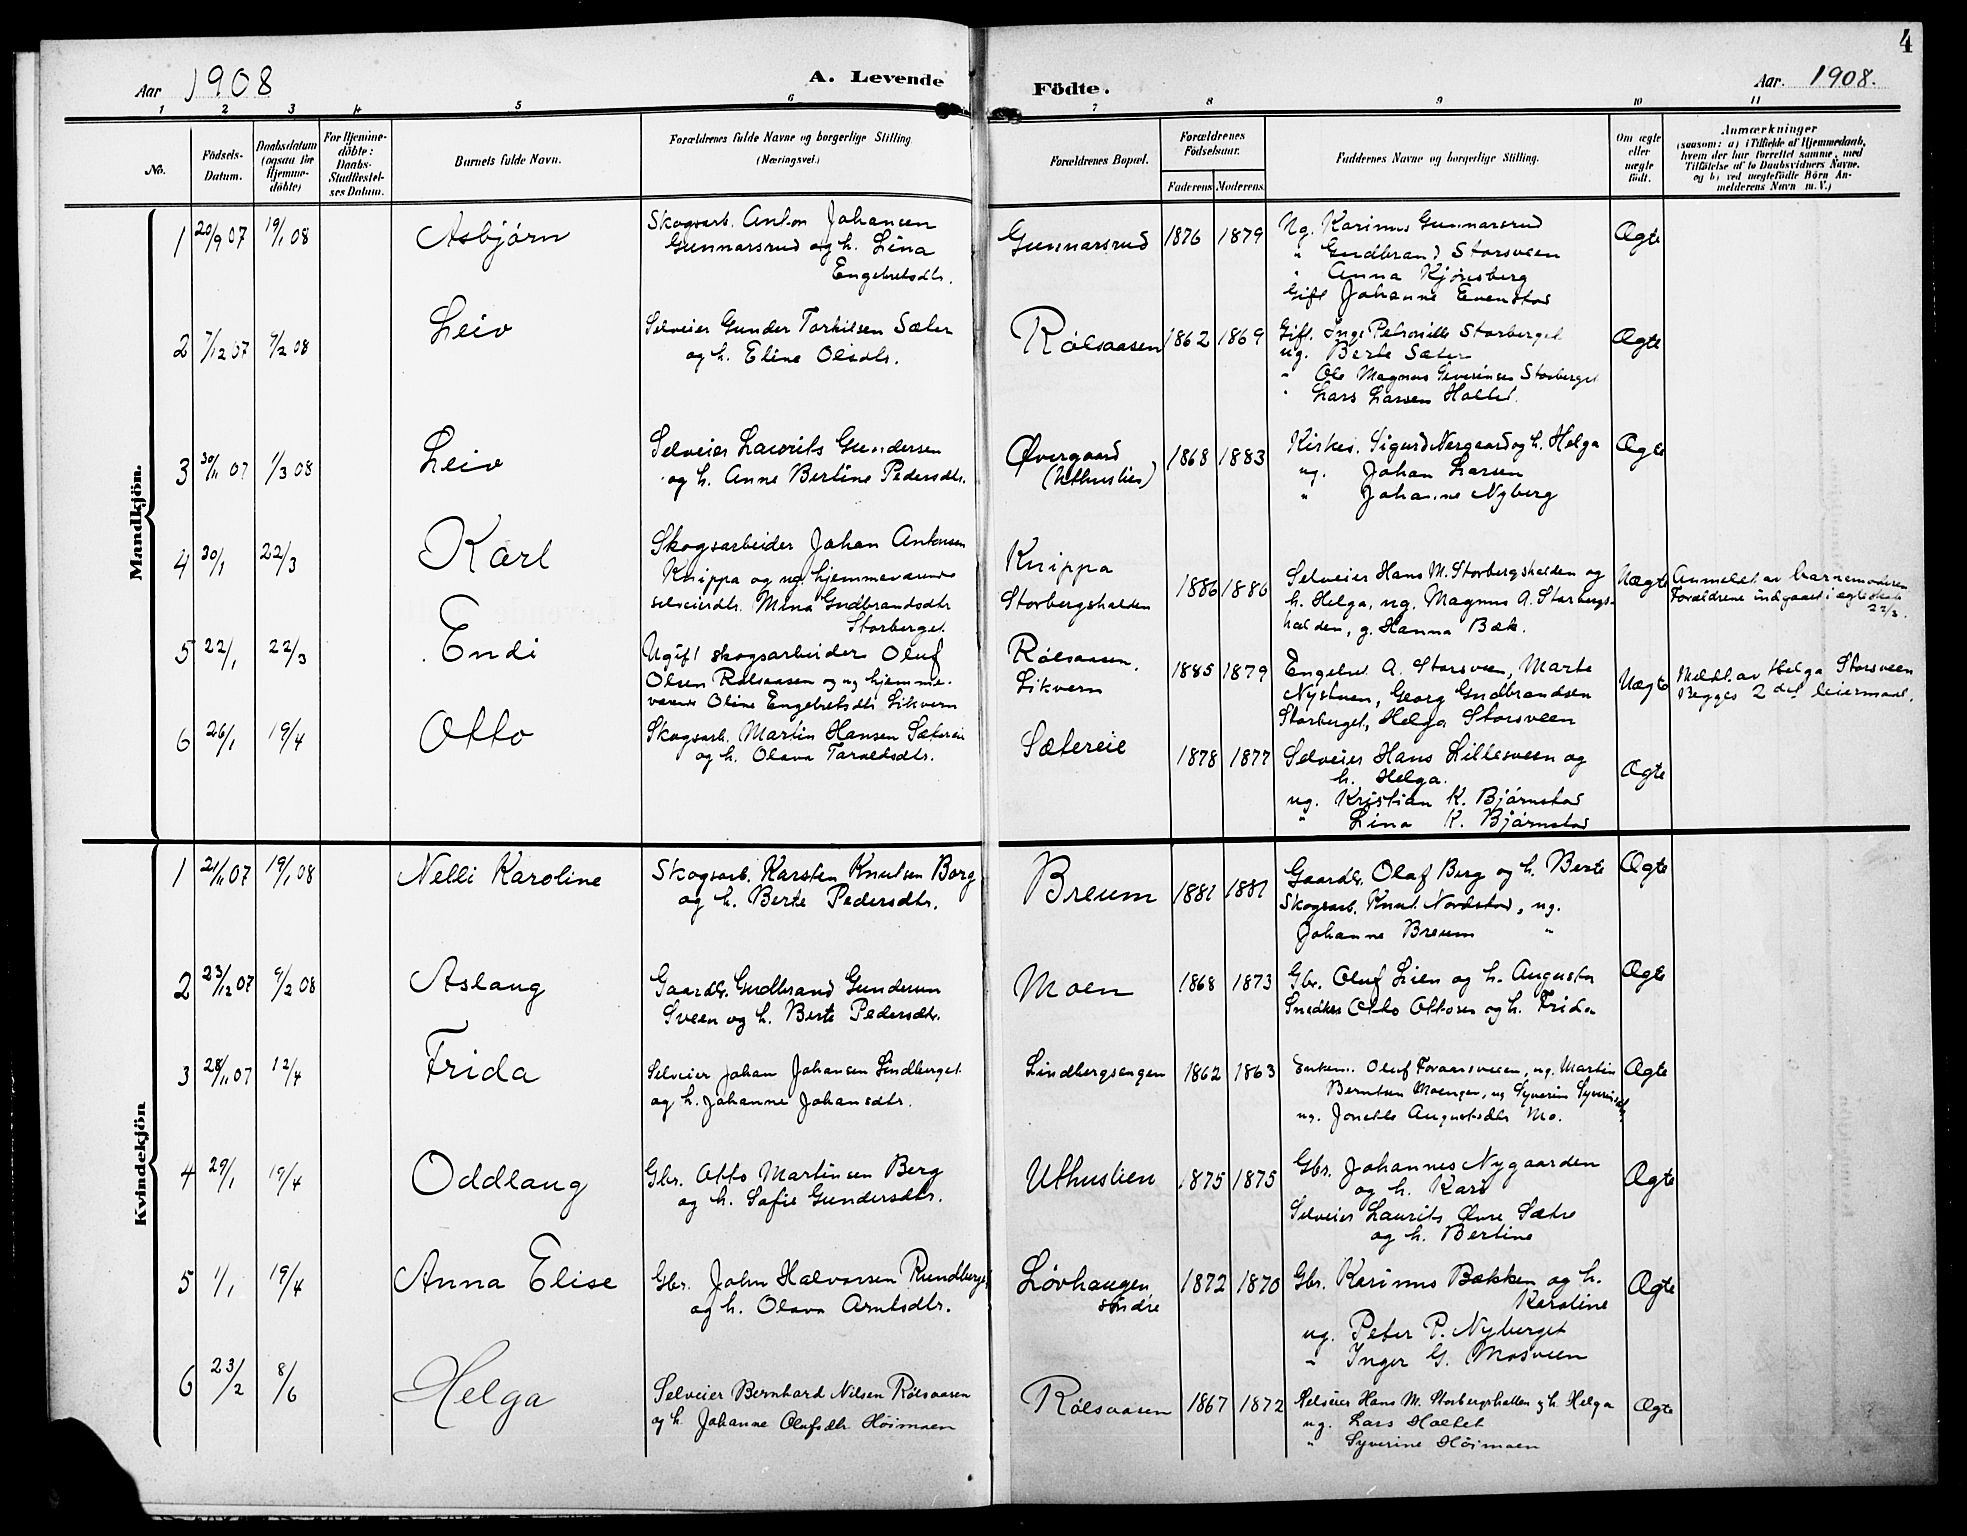 4
Aar 1908
A. Levende
Födte.
Aar. 1908.
1 2 3 4 5 6 7 8 9 10 11
No.
Födsels-
Datum.
Daabsdatum
(ogsaa for
Hjemme-
döbte)
For Hjemme-
döbte:
Daabs-
Stadfæstel-
ses Datum.
Barnets fulde Navn.
Forældrenes fulde Navne og borgerlige Stilling.
(Næringsvei.)
Forældrenes Bopæl.
Forældrenes
Födselsaar.
Faderens
Moderens.
Faddernes Navne og borgerlige Stilling.
Om ægte
eller
uægte
födt.
Anmærkninger
(saasom: a) i Tilfælde af Hjemmedaab,
hvem der har forrettet samme, med
Tilföielse af to Daabsvidners Navne,
og b) ved uægtefödte Börn An-
melderens Navn m. V.)
Mandkjön.
1 20/9 07 19/1 08 Asbjörn
Skogsarb. Anton Johansen
Gunnarsrud og h. Lina
Engebretsdtr.
Gunnarsrud 1876 1879
Ug. Karinus Gunnarsrud
" Gudbrand Storsveen
" Anna Kjönsberg
Gift Johanne Evenstad
Ægte
2 7/12 07 9/2 08 Leiv
Selveier Gunder Torkilsen Sæter
og h. Eline Olsdtr.
Rölsaasen 1862 1869
Gift. Inge Petronille Storberget
ug. Berte Sæter
" Ole Magnus Severinsen Storberget
" Lars Larsen Holtet.
Ægte
3 30/11 07 1/3 08 Leiv
Selveier Laurits Gundersen
og h. Anne Bertine Pedersdtr.
Övergaard
(Uthuslien)
1868 1883
Kirkes. Sigurd Nergaard og h. Helga
ug. Johan Larsen
" Johanne Nyberg
Ægte
4 30/1 22/3 Karl
Skogsarbeider Johan Antonsen
Knippa og ug. hjemmeværende
selveierdtr. Mina Gudbrandsdtr
Storberget.
Knippa
Storbergshalden
1886 1886
Selveier Hans M. Storbergshalden og
h. Helga, ug. Magnus A. Storbergs-
halden, g. Hanna Bæk.
Uægte
Anmeldt av barnemoderen
Forældrene indgaaet i ægteskab
22/3.
5 22/1 22/3 Endi
Ugift skogsarbeider Oluf
Olsen Rölsaasen og ug hjemme-
værende Oline Engebretsdtr Likvern
Rölsaasen.
Likvern
1885 1879
Engebret A. Storsveen, Marte
Nystuen, Georg Gudbrandsen
Storberget, Helga Storsveen
Uægte
Meldt av Helga Storsveen
Begges 2det leiermaal.
6 26/1 19/4 Otto
Skogsarb. Martin Hansen Sætereie
og h. Olava Taraldsdtr.
Sætereie
1878 1877
Selveier Hans Lillesveen og
h. Helga.
ug. Kristian K. Björnstad
" Lina K. Björnstad
Ægte
Kvindekjön
1 21/11 07 19/1 08 Nelli Karoline
Skogsarb. Karsten Knutsen Borg
og h. Berte Pedersdtr.
Breum 1881 1881
Gaardbr. Olaf Berg og h. Berte
Skogsarb. Knut Nordstad, ug.
Johanne Breum "
Ægte
2 23/12 07 9/2 08 Aslaug
Gaardbr. Gudbrand Gundersen
Sveen og h. Berte Pedersdtr.
Moen 1868 1873
Gbr. Oluf Lien og h. Augusta
Snedker Otto Ottosen og h. Frida
Ægte
3 28/11 07 12/4 Frida
Selveier Johan Johansen Lindberget
og h. Johanne Johansdtr.
Lindbergsengen 1862 1863
Enkem. Oluf Foraarsveen, ug. Martin
Berntsen Moengen, ug Syverin Syverinsen,
ug. Jonette Augustsdtr Mo.
Ægte
4 29/1 19/4 Oddlaug
Gbr. Otto Martinsen Berg
og h. Sofie Gundersdtr.
Uthuslien 1875 1875
Gbr. Johannes Nygaarden
og h. Kari
Selveier Laurits Övre Sætre
og h. Bertine
Ægte
5 1/1 19/4 Anna Elise
Gbr. John Halvorsen Rundberget
og h. Olava Arntsdtr.
Lövhaugen
söndre
1872 1870
Gbr. Karinus Bakken og h.
Karoline
ug. Peter P. Nyberget
" Inger G. Mosveen
Ægte
6 23/2 8/6 Helga
Selveier Bernhard Nilsen Rölsaasen
og h. Johanne Olafsdtr Höimoen
Rölsaasen 1867 1872
Selveier Hans M. Storbergshalden og h. Helga
ug. Lars Holtet
" Syverine Höimoen
Ægte